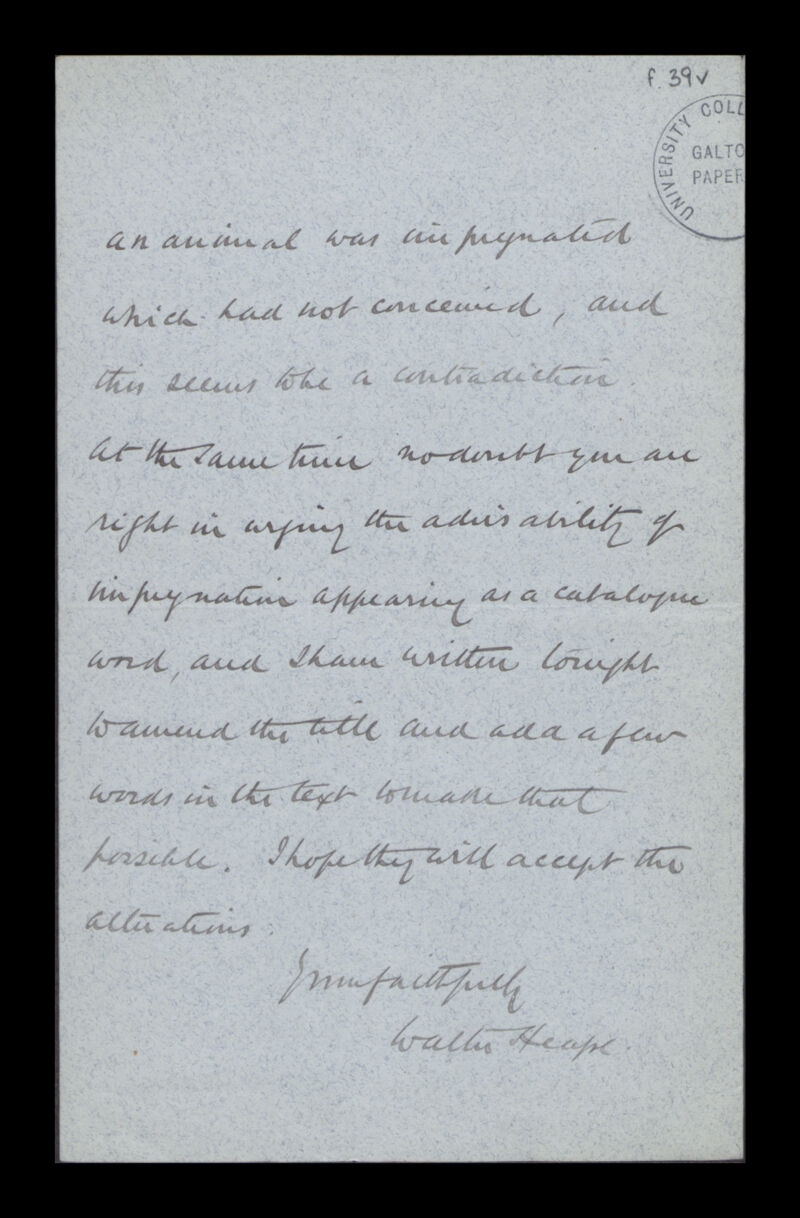 f. 39v
UNIVERSITY COLL
GALTO
PAPER
an animal was impregnated
which had not conceived, and
this seems to be a contradiction.
At the same time no doubt you are
right in urging the advisability of
impregnation appearing as a catalogue
word, and I have written tonight
to amend the title and add a few
words in the text to make that
possible. I hope they will accept the
alterations.
Yours faithfully
Walter Heape.